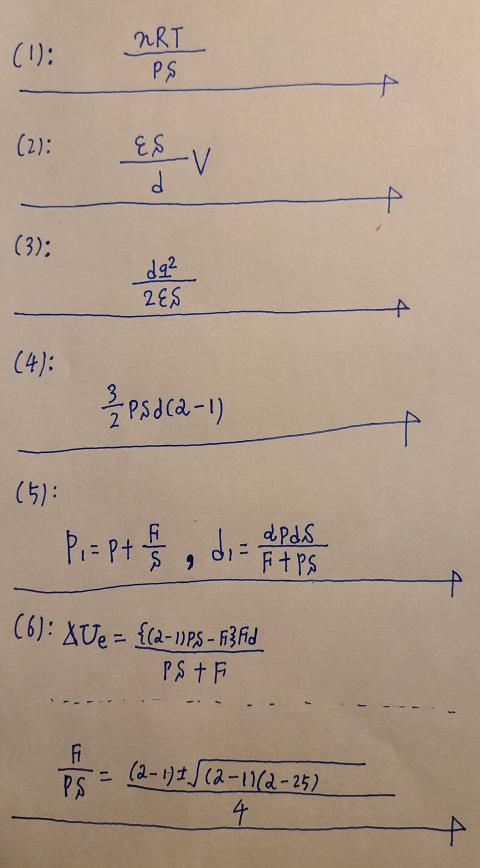 (1): \frac{nRT}{PS}
(2): \frac{εS}{d}V
(3): \frac{dq²}{2εS}
(4): \frac{3}{2}PSd(α-1)
(5): P₁=P+\frac{F}{S}, d₁=\frac{αPdS}{F+PS}
(6): ΔUe=\frac{{(α-1)PS-F}Fd}{PS+F}
\frac{F}{PS}=\frac{(α-1)±√(α-1)(α-25)}{4}